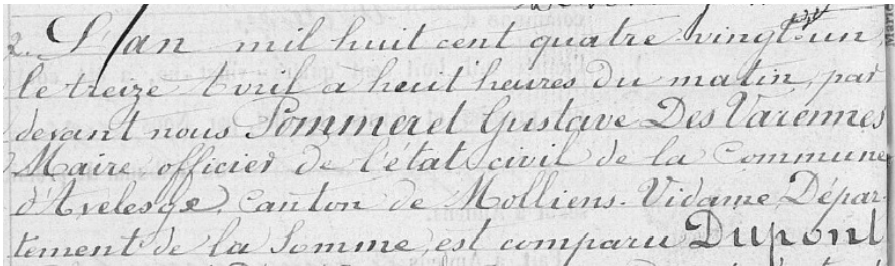 2. L'an mil huit cent quatre vingt-un,
le treize Avril à huit heures du matin, par
devant nous Pommeret Gustave Des Varennes
Maire, officier de l'état civil de la Commune
d'Avelesge, Canton de Molliens-Vidame Dépar-
tement de la Somme, est comparu Dupont